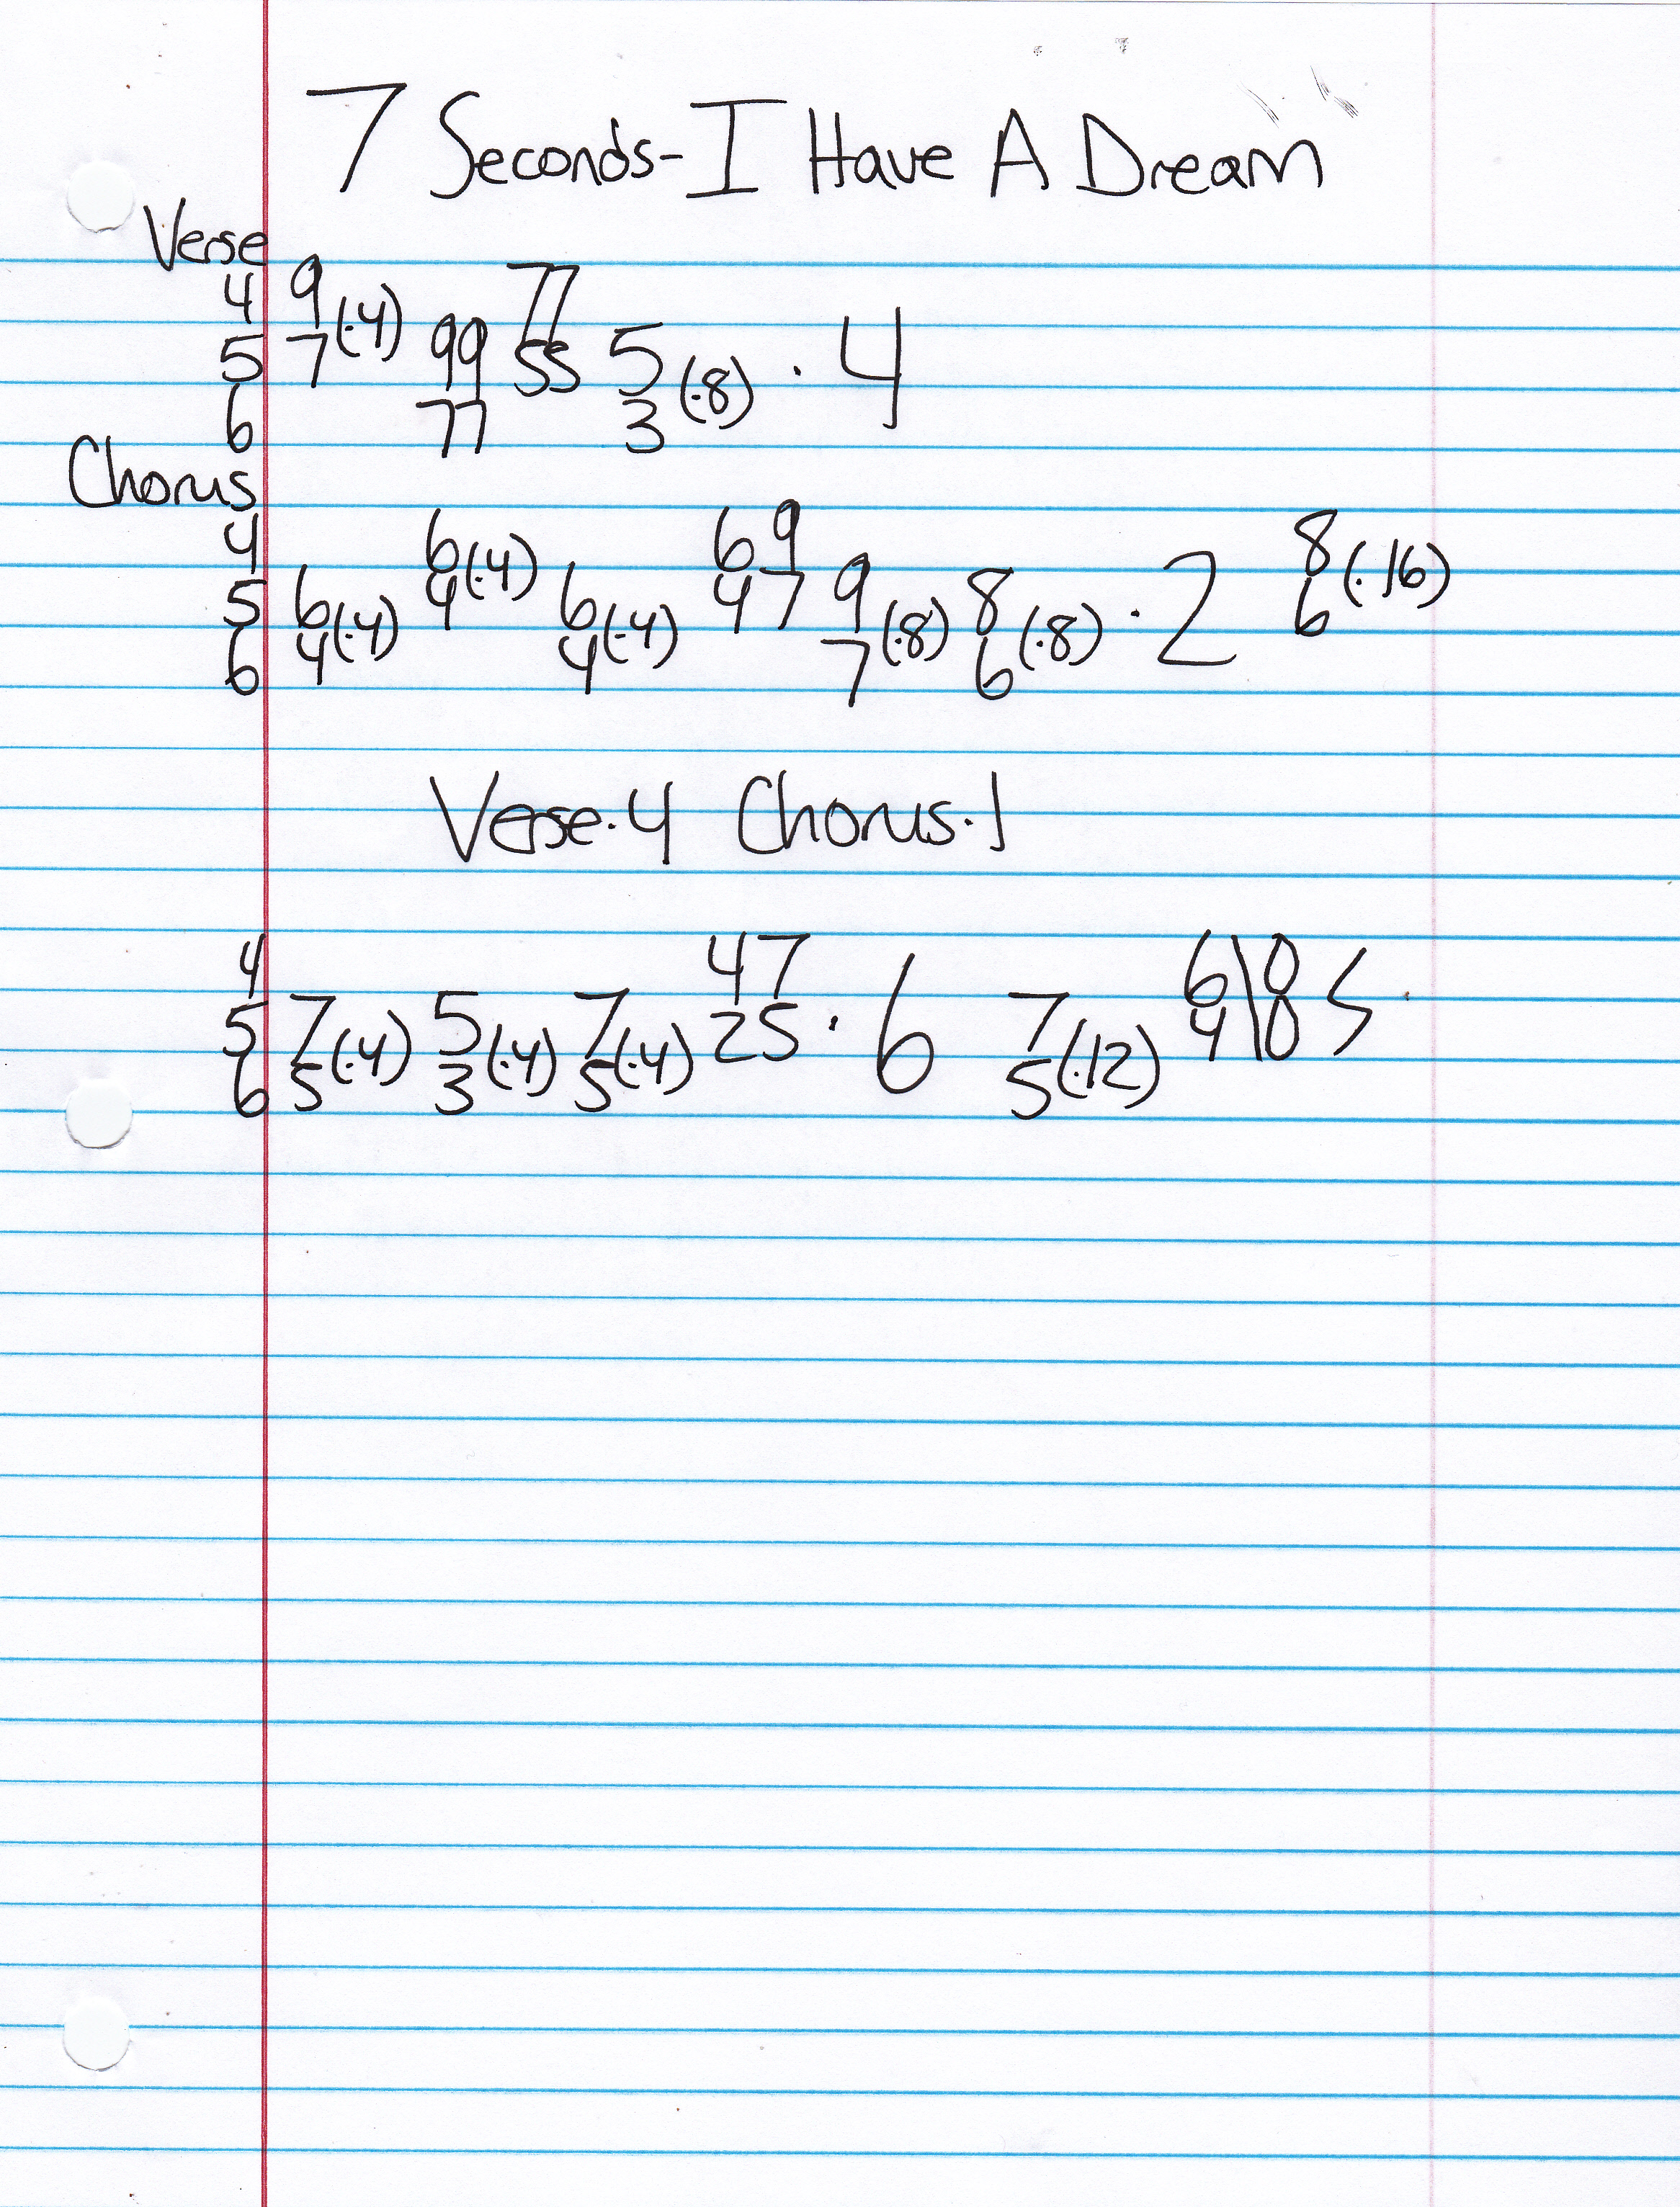 7 Seconds-I Have A Dream
Verse
4 9 77
5 7(·4) 99 55 5(·8) · 4
6 77 3
Chorus
4 6(·4) 69 8(·16)
5 6(·4) 4 6(·4) 47 9(·8) 8(·8) · 2 6
6 4 4 7 6
Verse·4 Chorus·1
4 47 6\0
5 7(·4) 5(·4) 7(·4) 25 · 6 7(·12) 4\0 S
6 5 3 5 5